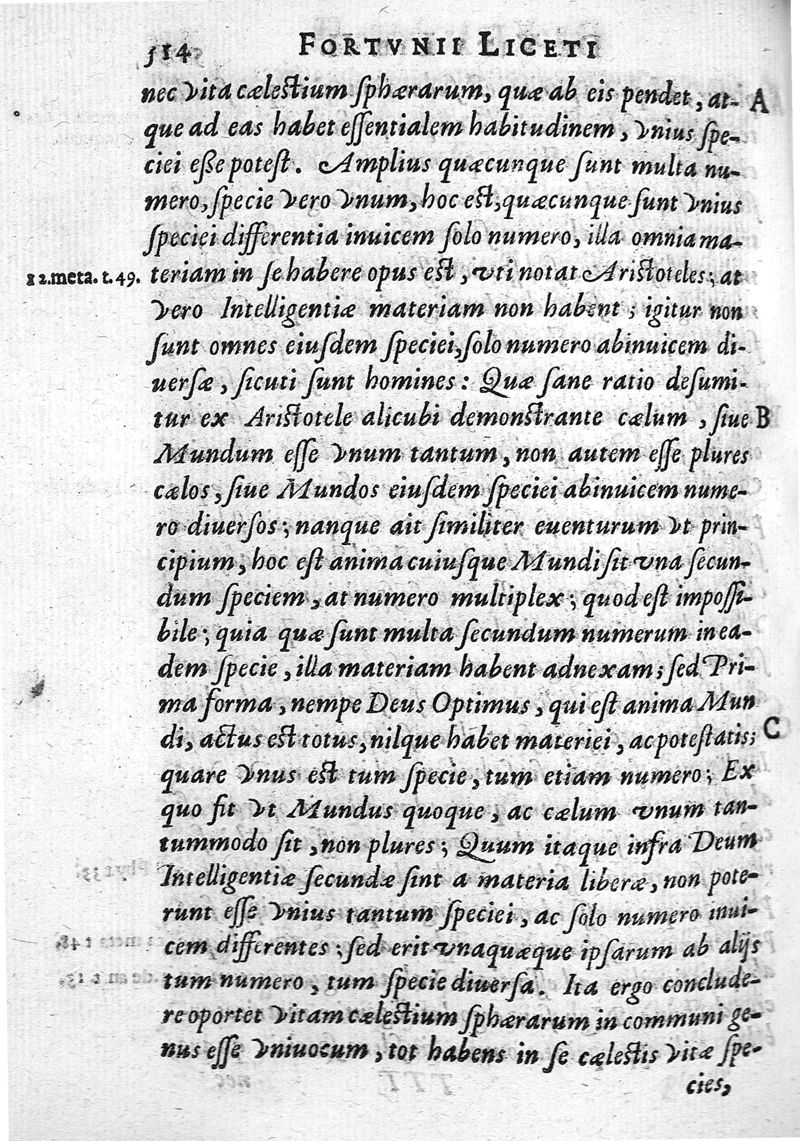 514 FORTVNII LICETI
nec vita cælestium sphærarum, quæ ab eis pendet, at- A
que ad eas habet essentialem habitudinem, vnius spe-
ciei esse potest. Amplius quæcunque sunt multa nu-
mero, specie vero vnum, hoc est, quæcunque sunt vnius
speciei differentia inuicem solo numero, illa omnia ma-
12.meta. t. 49. teriam in se habere opus est, vti notat Aristoteles; at
vero Intelligentiæ materiam non habent; igitur non
sunt omnes eiusdem speciei, solo numero abinuicem di-
uersæ, sicuti sunt homines: Quæ sane ratio desumi-
tur ex Aristotele alicubi demonstrante cælum, siue B
Mundum esse vnum tantum, non autem esse plures
cælos, siue Mundos eiusdem speciei abinuicem nume-
ro diuersos; nanque ait similiter euenturum vt prin-
cipium, hoc est anima cuiusque Mundi sit vna secun-
dum speciem, at numero multiplex; quod est impossi-
bile; quia quæ sunt multa secundum numerum in ea-
dem specie, illa materiam habent adnexam; sed Pri-
ma forma, nempe Deus Optimus, qui est anima Mun
di, actus est totus, nilque habet materiei, ac potestatis; C
quare vnus est tum specie, tum etiam numero; Ex
quo fit vt Mundus quoque, ac cælum vnum tan-
tummodo sit, non plures; Quum itaque infra Deum
Intelligentiæ secundæ sint a materia liberæ, non pote-
runt esse vnius tantum speciei, ac solo numero inui-
cem differentes; sed erit vnaquæque ipsarum ab alijs
tum numero, tum specie diuersa. Ita ergo conclude-
re oportet vitam cælestium sphærarum in communi ge-
nus esse vniuocum, tot habens in se cælestis vitæ spe-
cies,